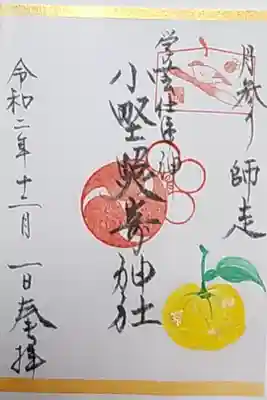 月詣り 師走
学芸仕事神
小野照崎神社
令和二年十二月一日奉拝